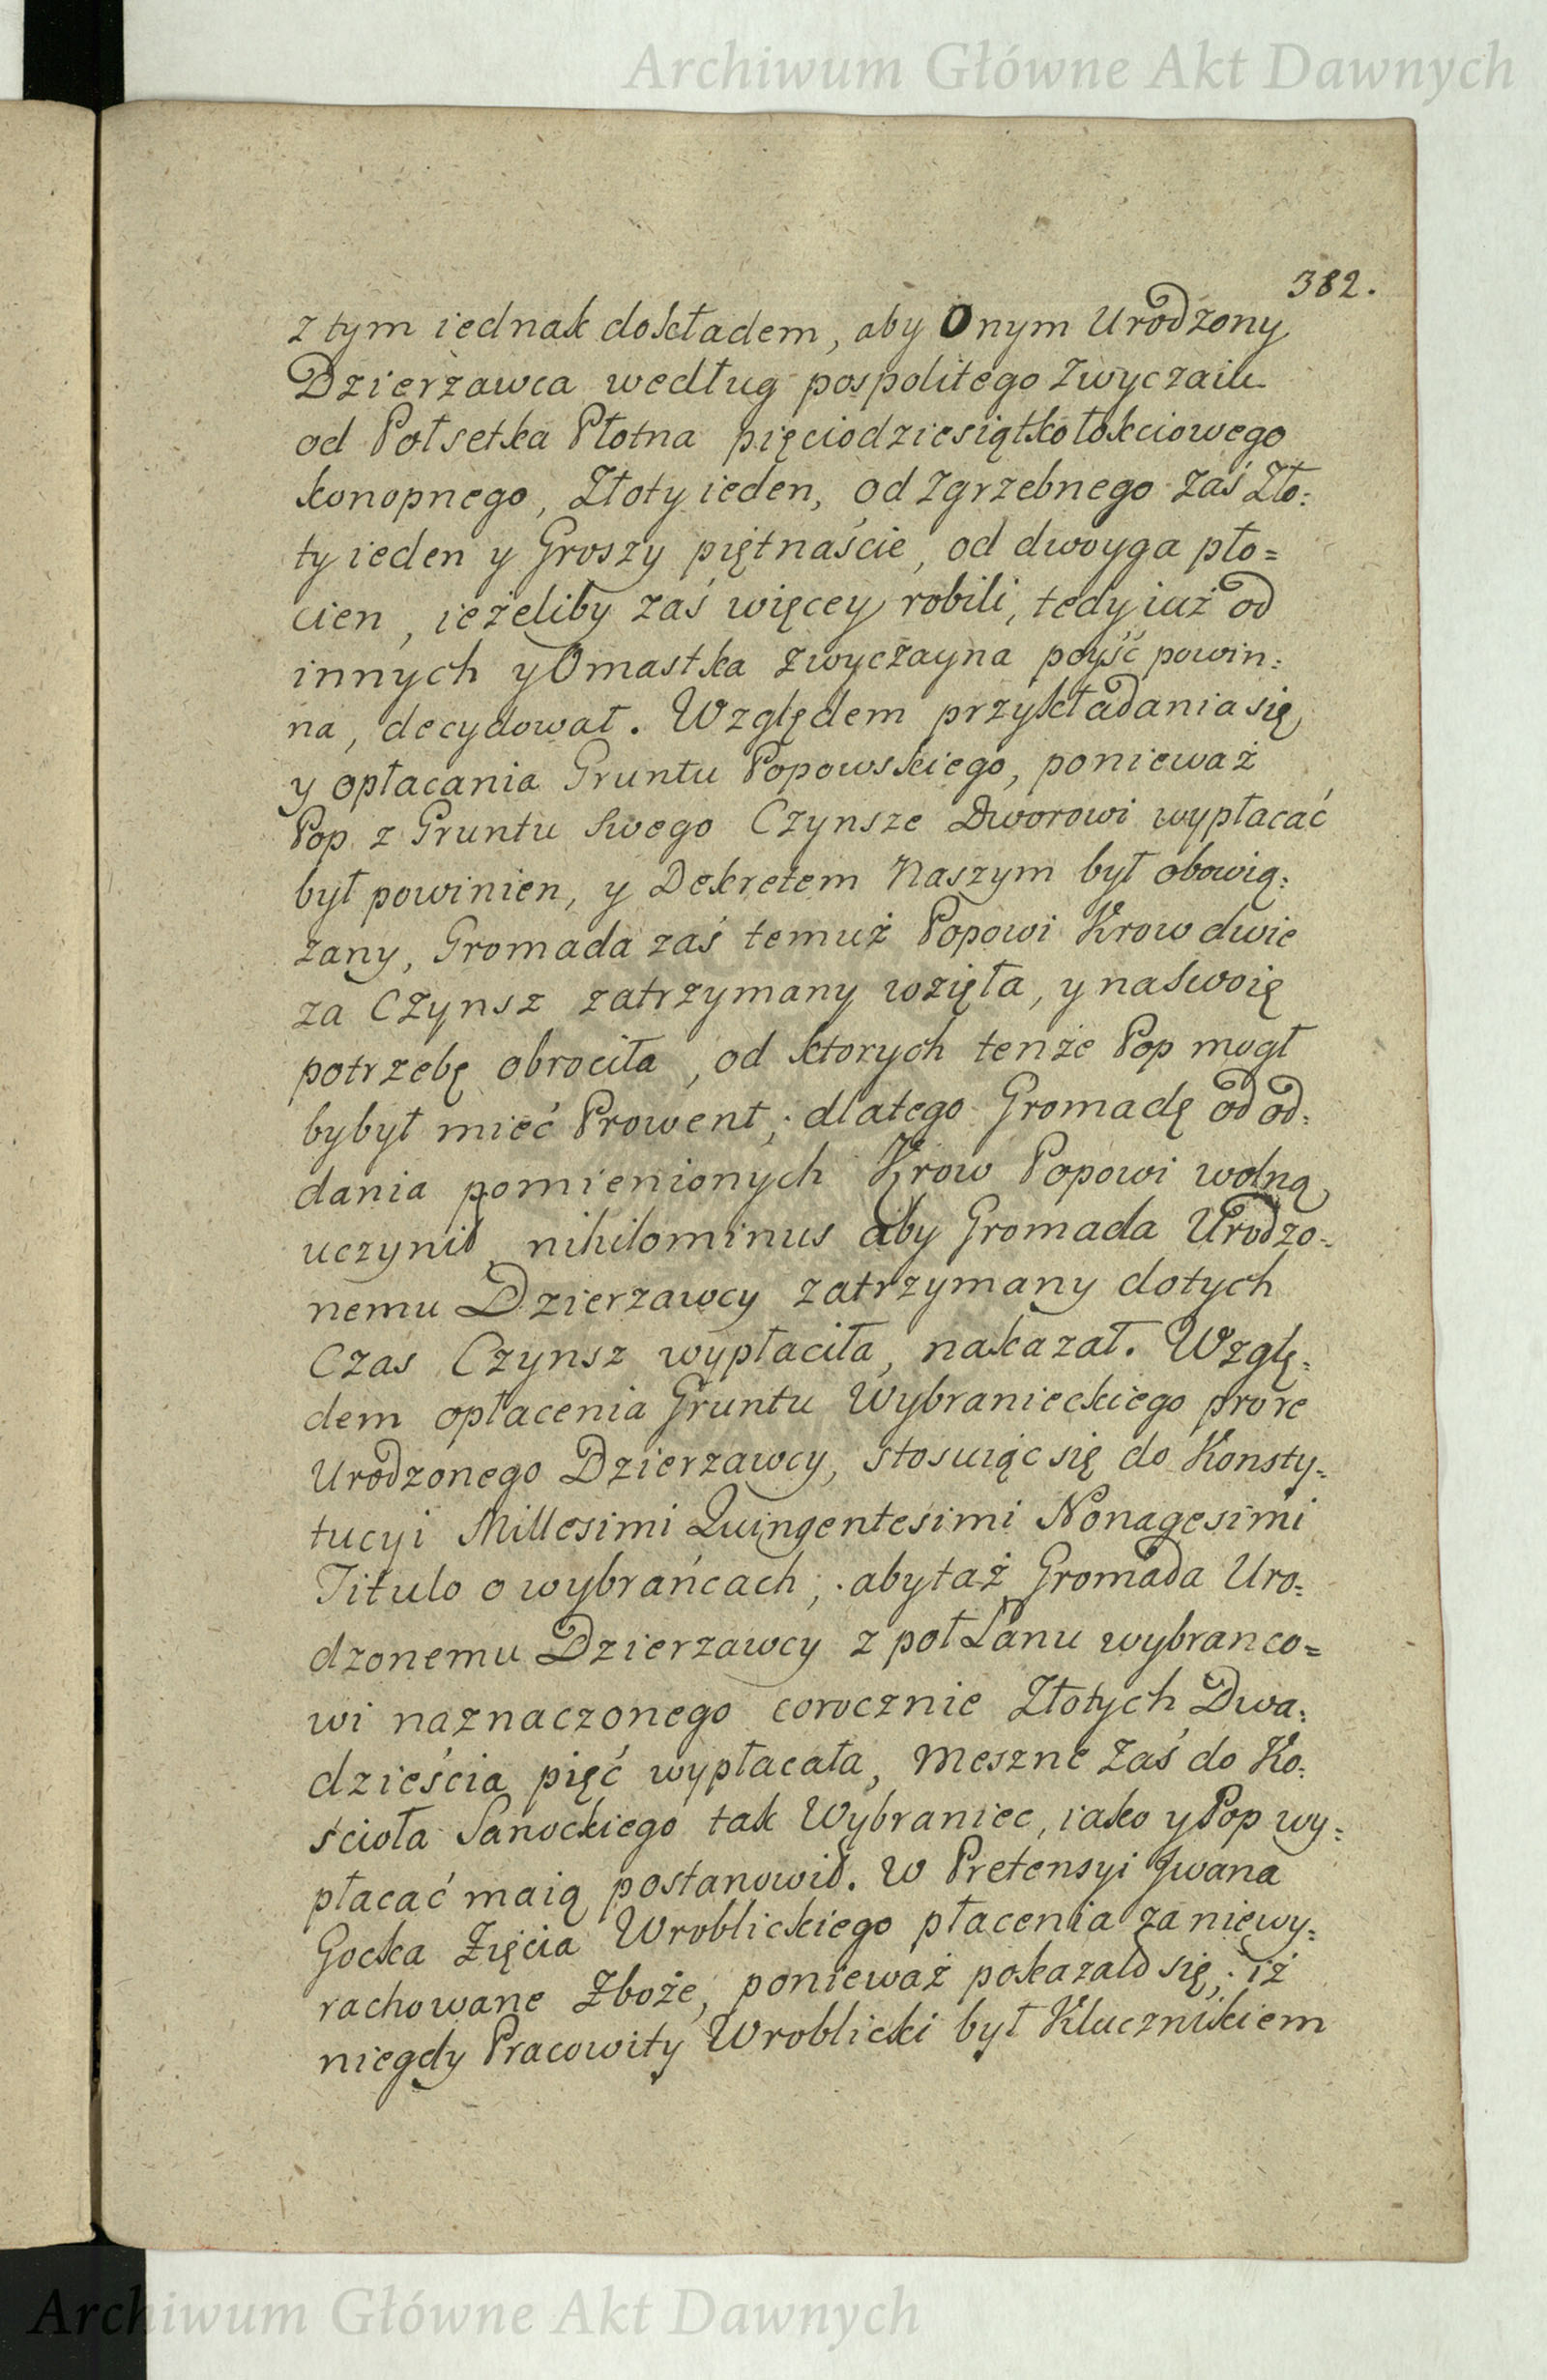 Archiwum Główne Akt Dawnych
382.
z tym iednak dokładem, aby Onym Urodzony
Dzierżawca według pospolitego zwyczaiu
od Połsetka Płotna pięciodziesiątkołokciowego
konopnego, Złoty ieden, od zgrzebnego zaś Zło:
ty ieden y Groszy piętnaście, od dwoyga pło=
cien, ieżeliby zaś więcey robili, tedy iuż od
innych y Omastka zwyczayna poyść powin:
na, decydował. Względem przykładania się
y opłacania Gruntu Popowskiego, ponieważ
Pop z Gruntu swego Czynsze Dworowi wypłacać
był powinien, y Dekretem Naszym był obowią:
zany, Gromada zaś temuż Popowi Krow dwie
za Czynsz zatrzymany wzięła, y na swoię
potrzebę obrociła, od ktorych tenże Pop mogł
by był mieć Prowent; dlatego Gromadę od od:
dania pomienionych Krow Popowi wolną
uczynił, nihilominus aby Gromada Urodzo:
nemu Dzierzawcy zatrzymany do tych
Czas Czynsz wypłaciła, nakazał. Wzglę:
dem opłacenia Gruntu Wybranieckiego pro re
Urodzonego Dzierzawcy, stosuiąc się do Konsty:
tucyi Millesimi Quingentesimi Nonagesimi
Titulo o wybrańcach; aby taż Gromada Uro:
dzonemu Dzierzawcy z poł Łanu wybranco=
wi naznaczonego corocznie Złotych Dwa:
dzieścia pięć wypłacała, Meszne zaś do Ko:
ścioła Sanockiego tak Wybraniec, iako y Pop wy:
płacać maią postanowił. W Pretensyi Jwana
Gocka Zięcia Wroblickiego płacenia za niewy:
rachowane Zboże, ponieważ pokazało się; iż
niegdy Pracowity Wroblicki był Klucznikiem
Archiwum Główne Akt Dawnych